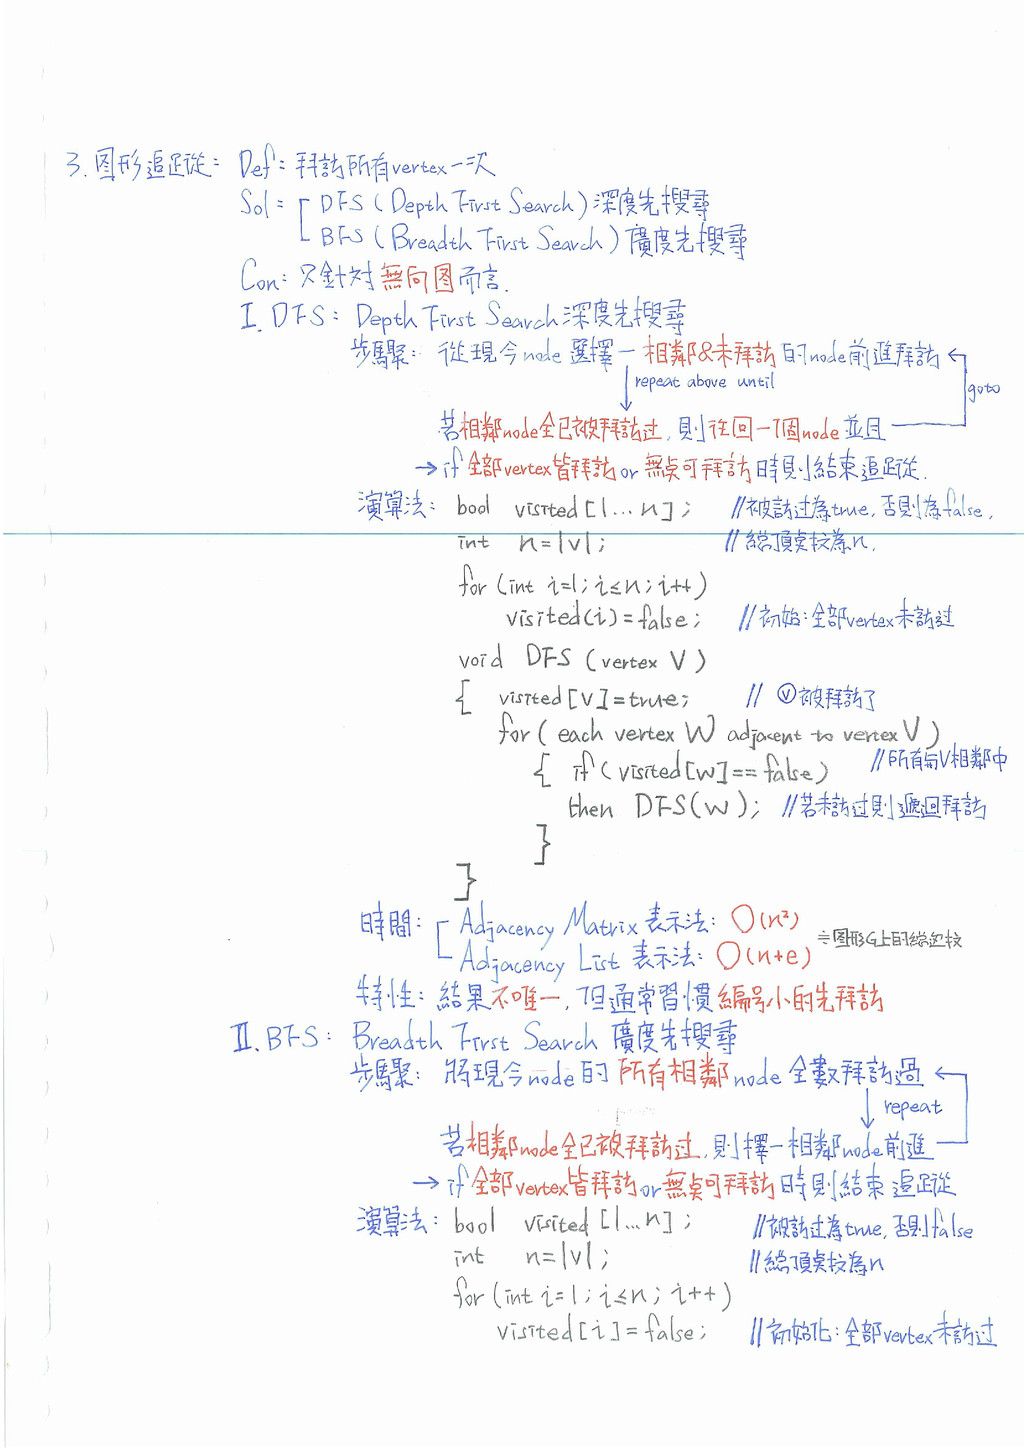 3. 图形追蹤： Def：拜訪所有vertex一次
Sol： DFS (Depth First Search) 深度先搜尋
BFS (Breadth First Search) 廣度先搜尋
Con：只針對無向图而言.
I. DFS： Depth First Search 深度先搜尋
步驟： 從現今node 選擇一相鄰&未拜訪的node前進拜訪
repeat above until
goto
若相鄰node全已被拜訪过, 則往回一個node 並且
→ if 全部vertex皆拜訪 or 無点可拜訪時則結束追蹤.
演算法： bool visited [1...n] ; //被訪过為true, 否則為false,
int n=|v| ; //總頂点数為n.
for (int i=1; i≤n; i++)
visited(i)=false; //初始：全部vertex未訪过
void DFS (vertex V)
{ visited [v]=true; // ⓥ被拜訪了
for ( each vertex W adjacent to vertex V )
//所有與V相鄰中
{ if ( visited[w]==false)
then DFS(w); //若未訪过則遞迴拜訪
}
}
時間： Adjacency Matrix 表示法： O(n²)
≒图形G上的總边数
Adjacency List 表示法： O(n+e)
特性： 結果不唯一, 但通常習慣編号小的先拜訪
II. BFS： Breadth First Search 廣度先搜尋
步驟： 將現今node的所有相鄰node 全數拜訪過
repeat
若相鄰node全已被拜訪过, 則擇一相鄰node前進
→ if 全部vertex皆拜訪or無点可拜訪時則結束 追蹤
演算法： bool visited [1...n] ; //被訪过為true, 否則false
int n=|v| ; //總頂点数為n
for (int i=1; i≤n; i++)
visited [i]=false; //初始化：全部vertex未訪过